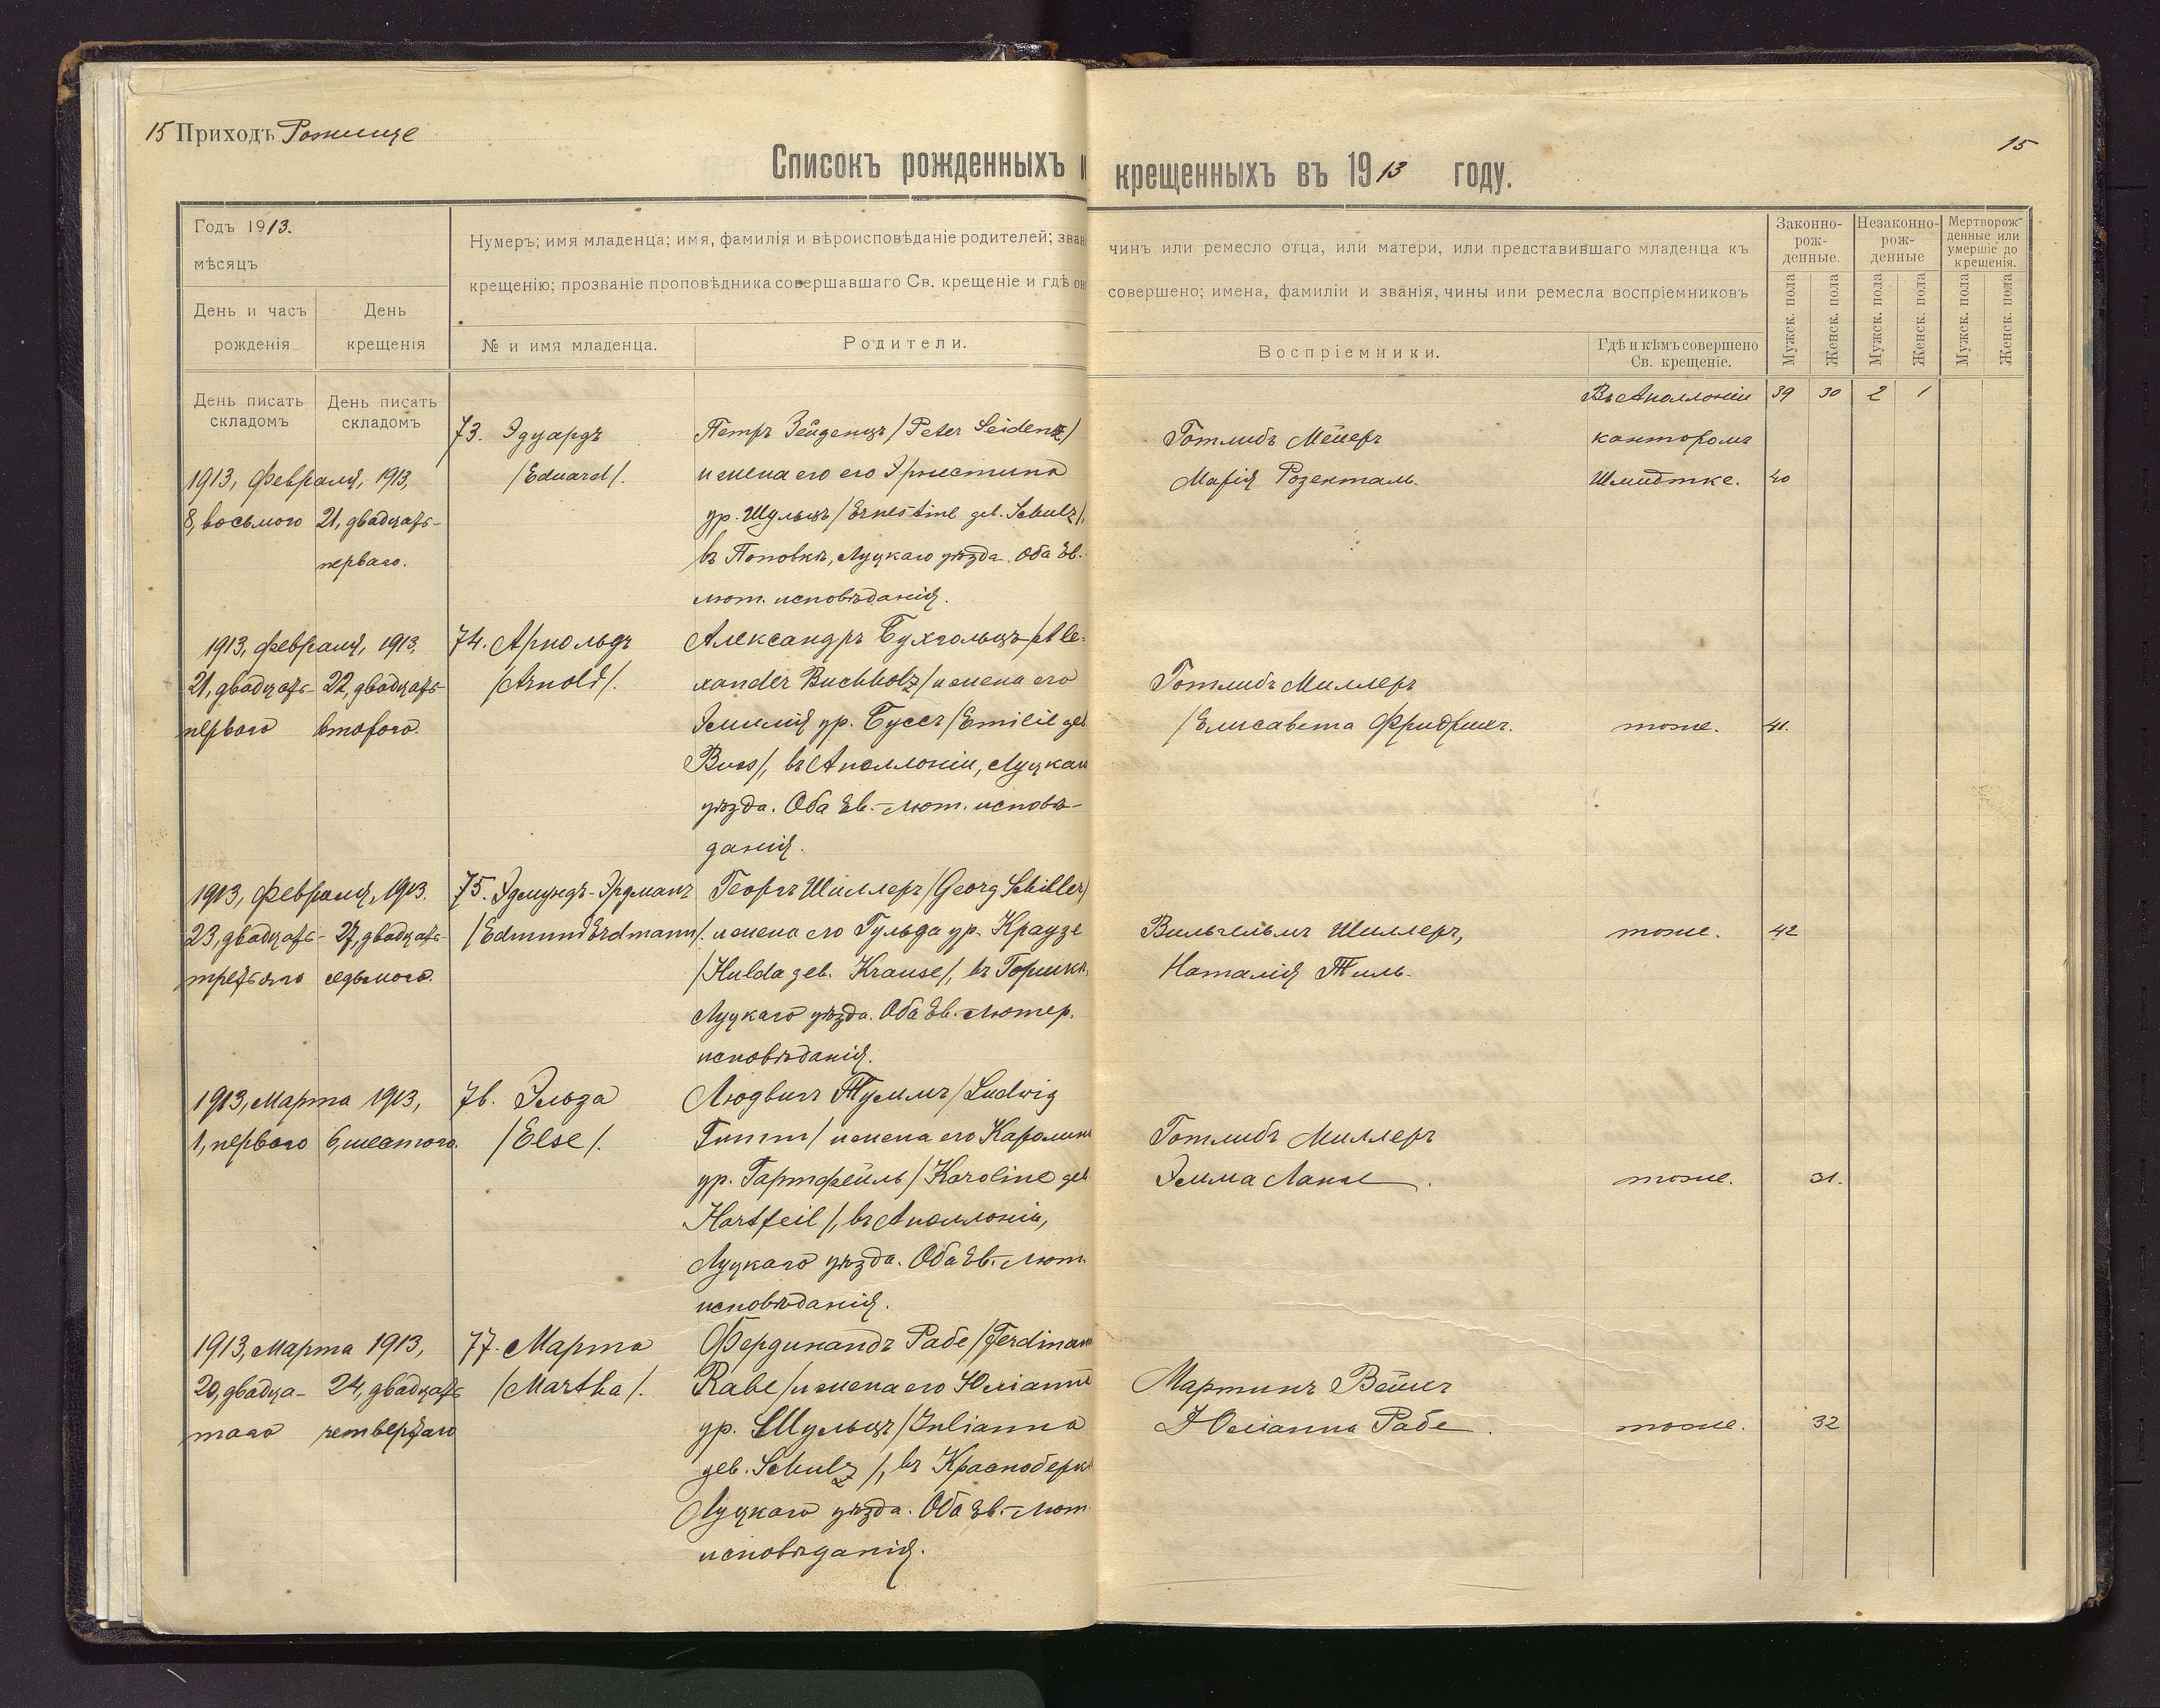 15 Приходъ Рожище
15
Списокъ рожденныхъ и крещенныхъ въ 1913 году.
Годъ 1913.
мѣсяцъ
День и часъ рожденія
День крещенія
День писать складомъ
День писать складомъ
Нумеръ; имя младенца; имя, фамилія и вѣроисповѣданіе родителей; зван
чинъ или ремесло отца, или матери, или представившаго младенца къ
крещенію; прозваніе проповѣдника совершавшаго Св. крещеніе и гдѣ он
совершено; имена, фамиліи и званія, чины или ремесла воспріемниковъ
№ и имя младенца.
Родители.
Воспріемники.
Гдѣ и кѣмъ совершено
Св. крещеніе.
Законно-рож-денные.
Незаконно-рож-денные
Мертворож-денные или умершіе до крещенія.
Мужск. пола
Женск. пола
Мужск. пола
Женск. пола
Мужск. пола
Женск. пола
Въ Аполлоніи 39 30 2 1
1913, Февраля, 1913,
8, восьмого 21, двадцать-
перваго.
73. Эдуардъ
/Eduard/.
Петръ Зейденцъ /Peter Seidenz/
и жена его его Эрнестина
ур. Шульцъ /Ernestine geb. Schulz/,
въ Поповкѣ, Луцкаго уѣзда. Оба Ев.-
лют. исповѣданія.
Готлибъ Мейеръ
Марія Розенталь.
канторомъ
Шмидтке. 40
1913, Февраля, 1913,
21, двадцать- 22, двадцать-
перваго второго.
74. Арнольдъ
/Arnold/.
Александръ Бухгольцъ /Ale-
xander Buchholz/ и жена его
Эмилія ур. Буссъ /Emilie geb
Buss/, въ Аполлоніи, Луцкаг
уѣзда. Оба Ев.-лют. исповѣ-
данія.
Готлибъ Миллеръ
/Елисавета Фридрихъ.
тоже. 41.
1913, Февраля, 1913.
23, двадцать- 27, двадцать-
третьяго седьмого.
75. Эдмундъ-Эрдманъ
/Edmund Erdmann/.
Георгъ Шиллеръ /Georg Schiller/
и жена его Гульда ур. Краузе
/Hulda geb. Krause/, въ Горшкѣ,
Луцкаго уѣзда. Оба Ев.-лютер.
исповѣданія.
Вильгельмъ Шиллеръ,
Наталія Тиль.
тоже. 42
1913, Марта 1913,
1, перваго 6, шестого.
76. Эльза
/Else/.
Людвигъ Тиммъ /Ludwig
Timm/ и жена его Каролина
ур. Гартфейль /Karoline geb
Hartfeil/, въ Аполлоніи,
Луцкаго уѣзда. Оба Ев.-лют.
исповѣданія.
Готлибъ Миллеръ
Эмма Ланге.
тоже. 31.
1913, Марта 1913,
20, двадца- 24, двадцать
таго четвертаго
77. Марта
/Martha/.
Фердинандъ Рабе /Ferdinand
Rabe/ и жена его Юліанна
ур. Шульцъ /Julianna
geb. Schulz/, въ
Луцкаго уѣзда. Оба Ев.-лют.
исповѣданія.
Мартинъ
Юліанна Рабе.
тоже. 32